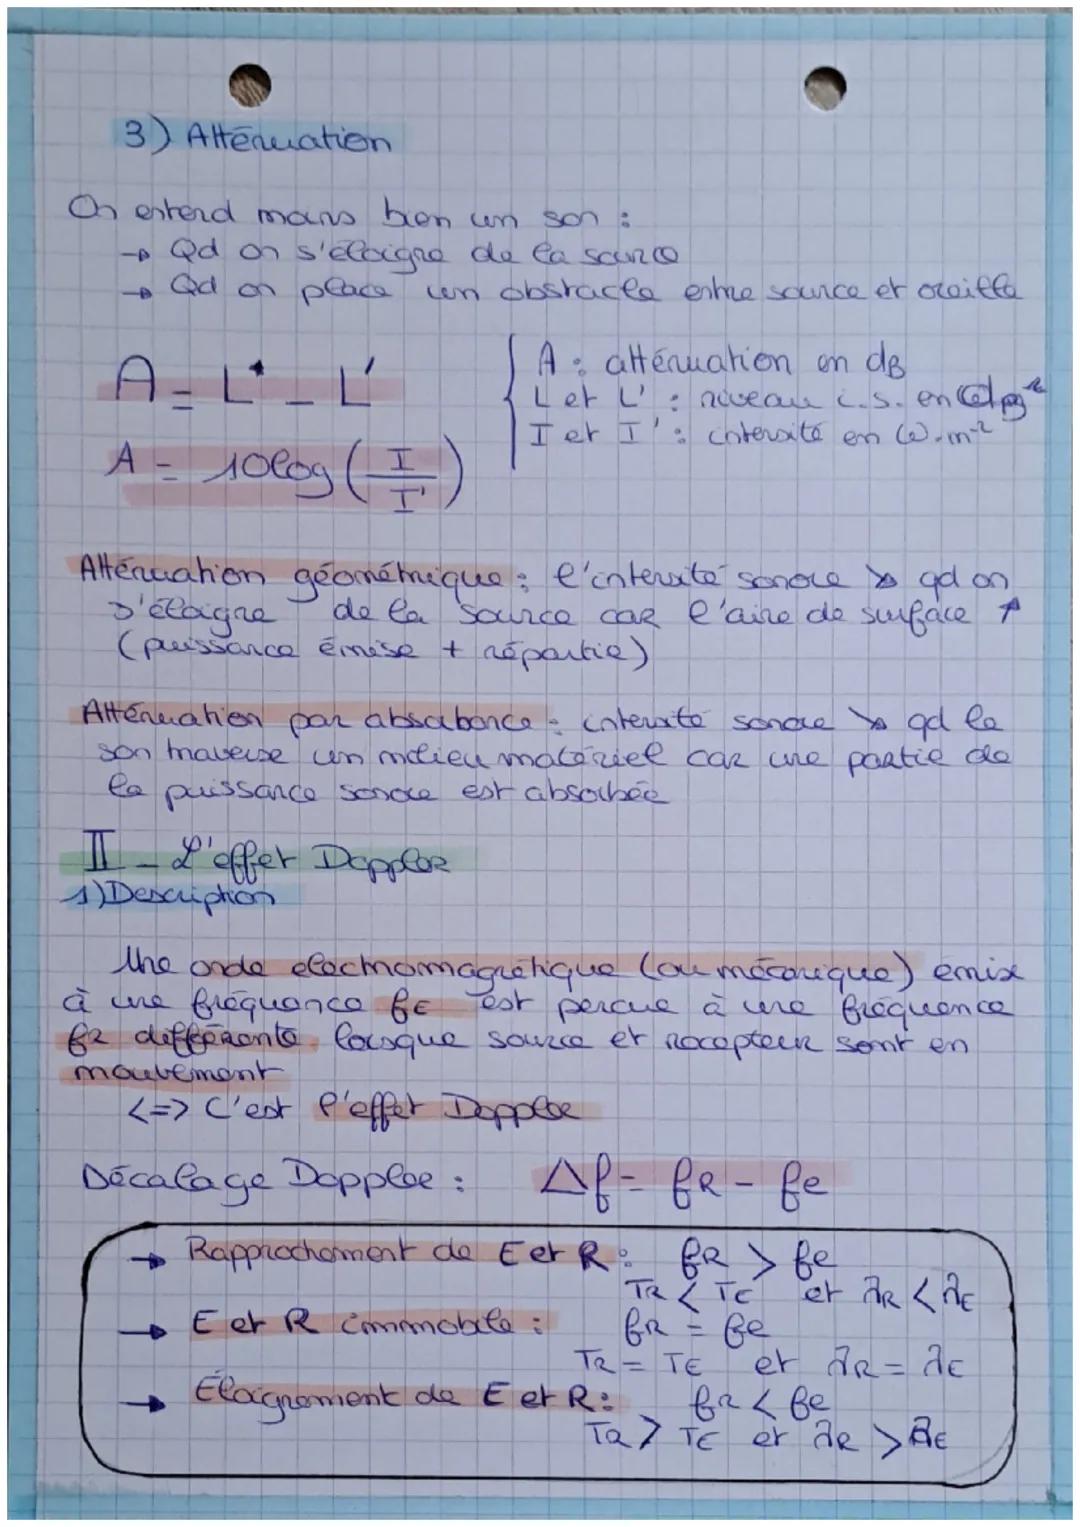 3) Atténuation
On entend moins bien un son :
→ Qd on s'éloigne de la source
→ Qd on place un obstacle entre source et oreille
A = L - L'
A = 10log(I/I')
A : atténuation en dB
L et L' : niveau i.s. en dB
I et I' : intensité en W.m⁻²
Atténuation géométrique : l'intensité sonore ↘ qd on
s'éloigne de la source car l'aire de surface ↑
(puissance émise + répartie)
Atténuation par absorbance : intensité sonore ↘ qd le
son traverse un milieu matériel car une partie de
la puissance sonore est absorbée
II - L'effet Doppler
1) Description
Une onde electromagnétique (ou mécanique) émise
à une fréquence fE est percue à une fréquence
fR différente lorsque source et recepteur sont en
mouvement
<=> C'est l'effet Doppler
Décalage Doppler : Δf = fR - fe
→ Rapprochement de E et R : fR > fe
TR < TE et λR < λE
→ E et R immobile : fR = fe
TR = TE et λR = λE
→ Éloignement de E et R : fR < fe
TR > TE et λR > λE